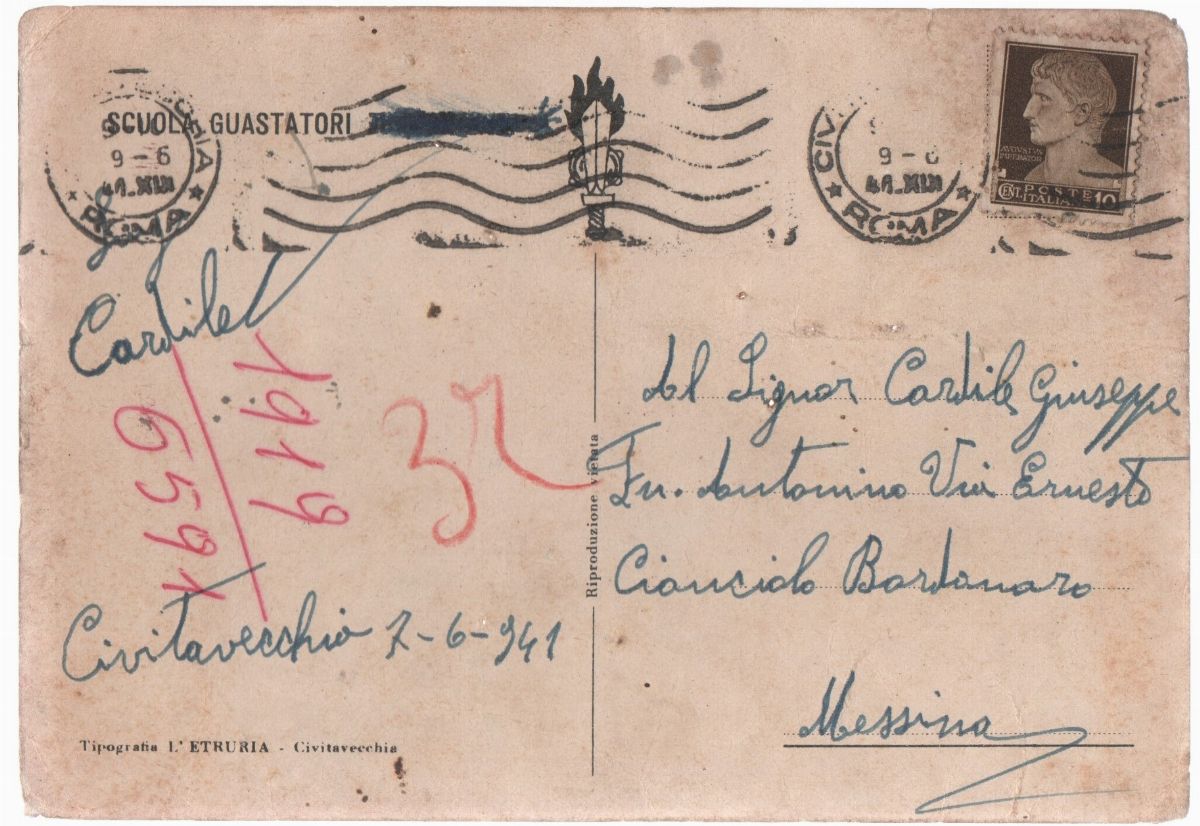 SCUOLA GUASTATORI
CHIA
9 - 6
41.XIX
ROMA
CIV
9 - 6
41.XIX
ROMA
AVGVSTVS
IMPERATOR
POSTE
CENT. ITALIANE 10
Cardile
1919
6591
32
Civitavecchia 7-6-941
Tipografia L' ETRURIA - Civitavecchia
Riproduzione vietata
Al Signor Cardile Giuseppe
Fu. Antonino Via Ernesto
Cianciolo Bordonaro
Messina